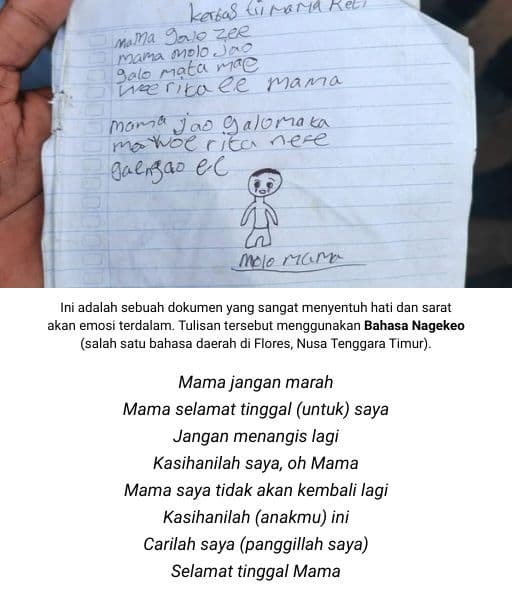 kertas Tii mama Reti
mama galo zee
mama molo Jao
galo mata mae
woe rita ee mama
mama jao galo mata
mae woe rita nere
gae ngao ee
molo mama
Ini adalah sebuah dokumen yang sangat menyentuh hati dan sarat
akan emosi terdalam. Tulisan tersebut menggunakan Bahasa Nagekeo
(salah satu bahasa daerah di Flores, Nusa Tenggara Timur).
Mama jangan marah
Mama selamat tinggal (untuk) saya
Jangan menangis lagi
Kasihanilah saya, oh Mama
Mama saya tidak akan kembali lagi
Kasihanilah (anakmu) ini
Carilah saya (panggillah saya)
Selamat tinggal Mama